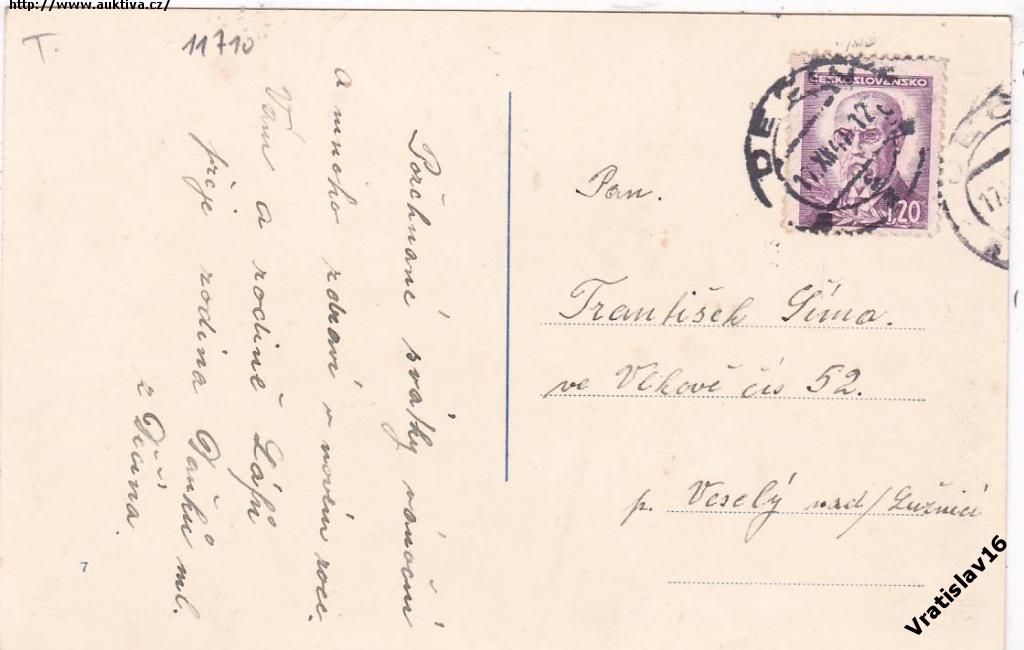 http://www.auktiva.cz/
T.
11710
Požehnané svátky vánoční
a mnoho zdraví v novém roce
Vám a rodině
přeje rodina Vaňků ml.
z Dičina.
7
ČESKOSLOVENSKO
1,20
Pan.
František Šíma.
ve Vlkově čís 52.
p. Veselý nad/Lužnicí
Vratislav16